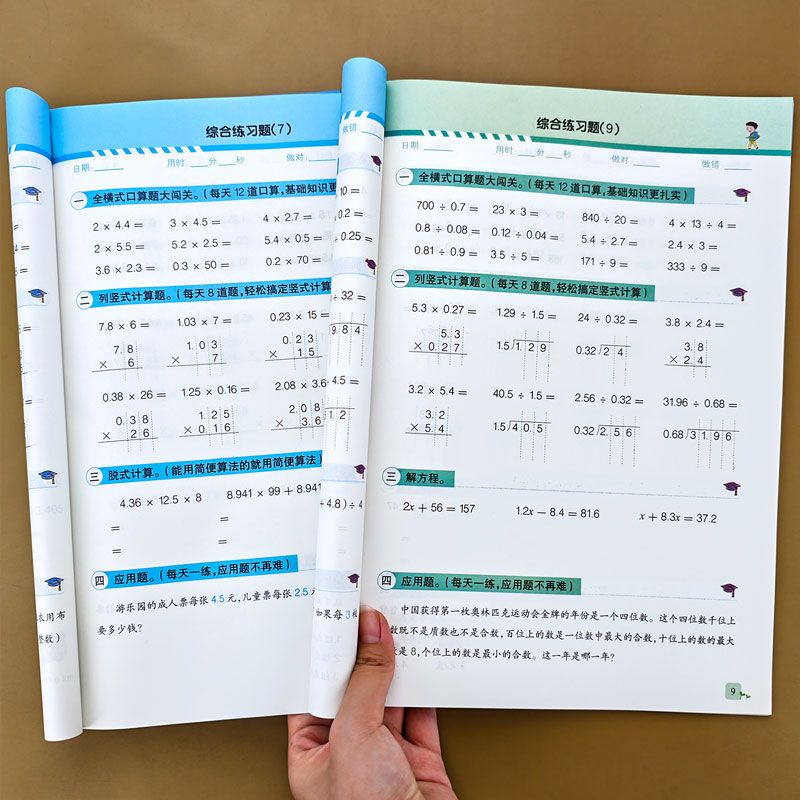 综合练习题(7)
日期: 用时: 分 秒 做对:
一 全横式口算题大闯关。(每天 12 道口算,基础知识更
2 × 4.4 = 3 × 4.5 = 4 × 2.7 =
2 × 5.5 = 5.2 × 2.5 = 5.4 × 0.5 =
3.6 × 2.3 = 0.3 × 50 = 0.2 × 70 =
二 列竖式计算题。(每天 8 道题,轻松搞定竖式计算
7.8 × 6 = 1.03 × 7 = 0.23 × 15 =
7.8 1.03 0.23
× 6 × 7 × 15
0.38 × 26 = 1.25 × 0.16 = 2.08 × 3.6
0.38 1.25 2.08
× 26 × 0.16 × 3.6
三 脱式计算。(能用简便算法的就用简便算法)
4.36 × 12.5 × 8 8.941 × 99 + 8.941
= =
= =
四 应用题。(每天一练,应用题不再难)
游乐园的成人票每张 4.5 元,儿童票每张 2.5 元
要多少钱?
做错
10 =
0.2 =
÷ 0.25 =
÷ 32 =
9.84
4.5 =
1.2
+ 4.8) ÷ 4
如果每 3
农用布
整数)
综合练习题(9)
日期: 用时: 分 秒 做对 做错
一 全横式口算题大闯关。(每天 12 道口算,基础知识更扎实)
700 ÷ 0.7 = 23 × 3 = 840 ÷ 20 = 4 × 13 ÷ 4 =
0.8 ÷ 0.08 = 0.12 ÷ 0.04 = 5.4 ÷ 2.7 = 2.4 × 3 =
0.81 ÷ 0.9 = 3.5 ÷ 5 = 171 ÷ 9 = 333 ÷ 9 =
二 列竖式计算题。(每天 8 道题,轻松搞定竖式计算)
5.3 × 0.27 = 1.29 ÷ 1.5 = 24 ÷ 0.32 = 3.8 × 2.4 =
5.3 1.5 1.29 0.32 24 3.8
× 0.27 × 2.4
3.2 × 5.4 = 40.5 ÷ 1.5 = 2.56 ÷ 0.32 = 31.96 ÷ 0.68 =
3.2 1.5 40.5 0.32 2.56 0.68 31.96
× 5.4
三 解方程。
2x + 56 = 157 1.2x − 8.4 = 81.6 x + 8.3x = 37.2
四 应用题。(每天一练,应用题不再难)
中国获得第一枚奥林匹克运动会金牌的年份是一个四位数。这个四位数千位上
数既不是质数也不是合数,百位上的数是一位数中最大的合数,十位上的数的最大
是 8,个位上的数是最小的合数。这一年是哪一年?
9